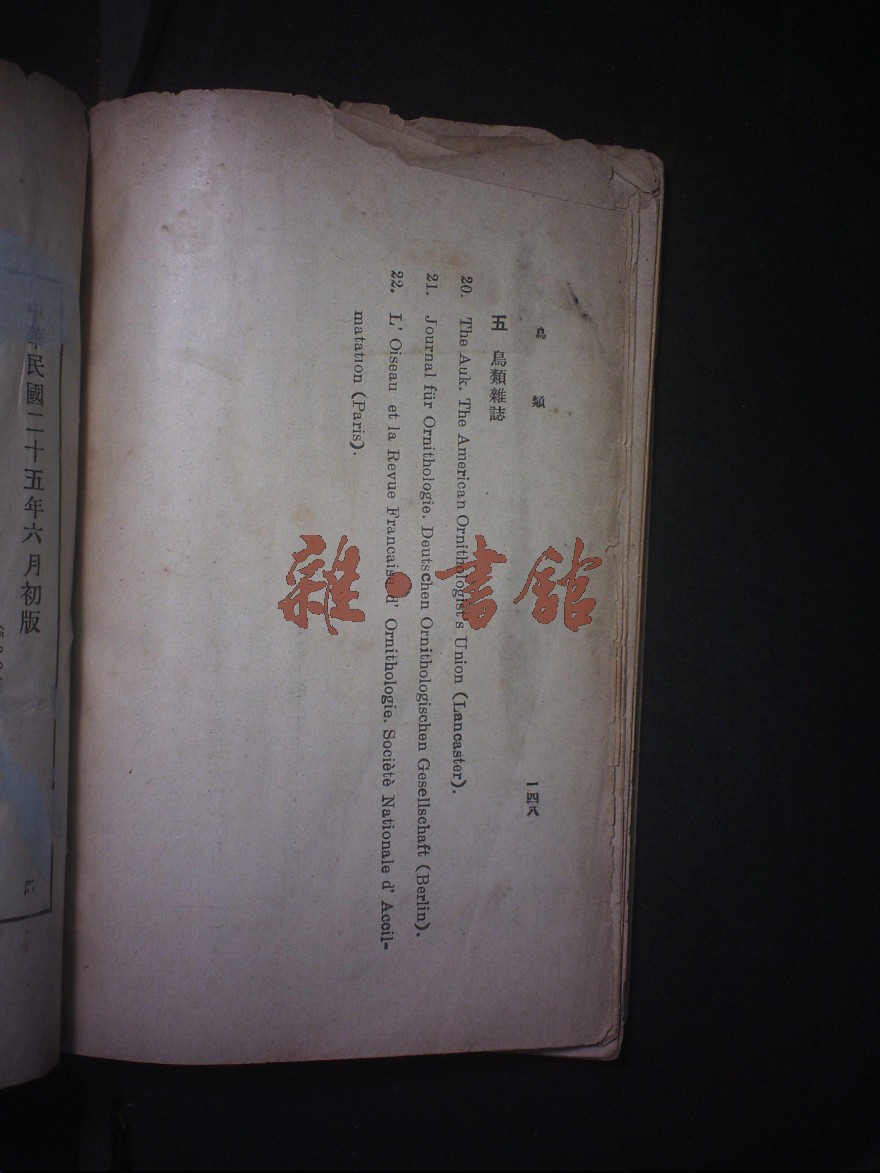 鳥類
一四八
五 鳥類雜誌
20. The Auk. The American Ornithologist's Union (Lancaster).
21. Journal für Ornithologie. Deutschen Ornithologischen Gesellschaft (Berlin).
22. L' Oiseau et la Revue Francaise d' Ornithologie. Sociètè Nationale d' Accil-
matation (Paris).
中華民國二十五年六月初版
雜·書館